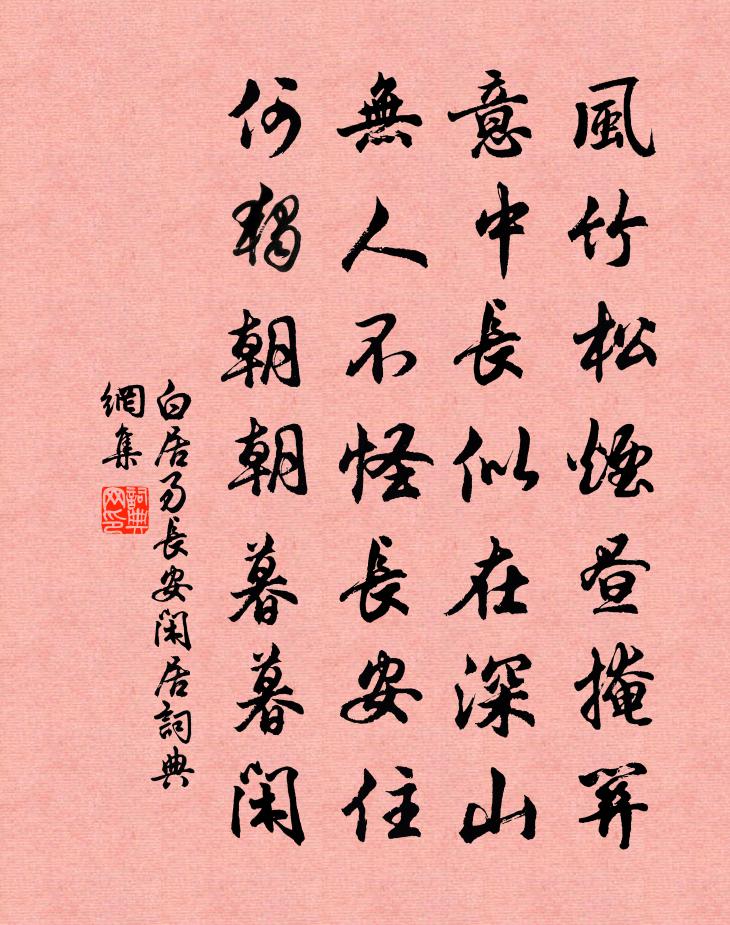 風竹松煙晝掩關
意中長似在深山
無人不怪長安住
何獨朝朝暮暮閑
白居易長安閑居詞典
網集
詞典
网印